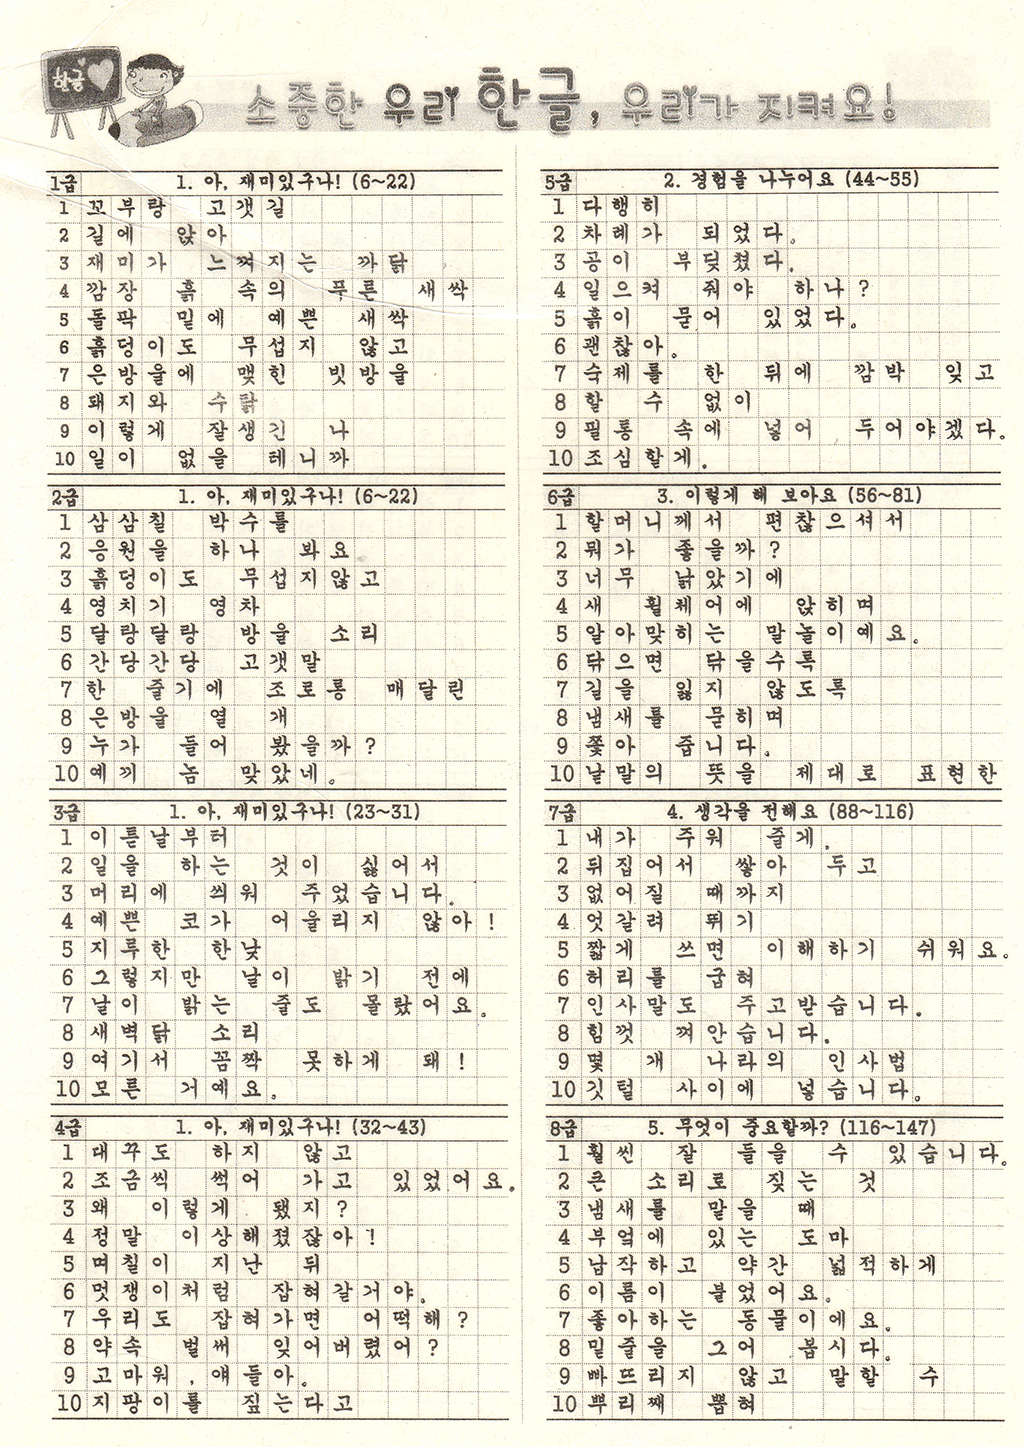 한글
소중한 우리 한글, 우리가 지켜요!
1급 1. 아, 재미있구나! (6~22)
1 꼬부랑 고갯길
2 길에 앉아
3 재미가 느껴지는 까닭
4 깜장 흙 속의 푸른 새싹
5 돌팍 밑에 예쁜 새싹
6 흙덩이도 무섭지 않고
7 은방울에 맺힌 빗방울
8 돼지와 수탉
9 이렇게 잘생긴 나
10 일이 없을 테니까
2급 1. 아, 재미있구나! (6~22)
1 삼삼칠 박수를
2 응원을 하나 봐요
3 흙덩이도 무섭지않고
4 영치기 영차
5 달랑달랑 방울 소리
6 간당간당 고갯말
7 한 줄기에 조로롱 매달린
8 은방울 열 개
9 누가 들어 봤을까?
10 예끼 놈 맞았네.
3급 1. 아, 재미있구나! (23~31)
1 이튿날부터
2 일을 하는 것이 싫어서
3 머리에 씌워 주었습니다.
4 예쁜 코가 어울리지 않아!
5 지루한 한낮
6 그렇지만 날이 밝기 전에
7 날이 밝는 줄도 몰랐어요.
8 새벽닭 소리
9 여기서 꼼짝 못하게 돼!
10 모른 거예요.
4급 1. 아, 재미있구나! (32~43)
1 대꾸도 하지 않고
2 조금씩 썩어 가고 있었어요.
3 왜 이렇게 됐지?
4 정말 이상해졌잖아!
5 며칠이 지난 뒤
6 멋쟁이처럼 잡혀갈거야.
7 우리도 잡혀가면 어떡해?
8 약속 벌써 잊어버렸어?
9 고마워, 얘들아.
10 지팡이를 짚는다고
5급 2. 경험을 나누어요 (44~55)
1 다행히
2 차례가 되었다.
3 공이 부딪쳤다.
4 일으켜 줘야 하나?
5 흙이 묻어 있었다.
6 괜찮아.
7 숙제를 한 뒤에 깜박 잊고
8 할 수 없이
9 필통 속에 넣어 두어야겠다.
10 조심할게.
6급 3. 이렇게 해 보아요 (56~81)
1 할머니께서 편찮으셔서
2 뭐가 좋을까?
3 너무 낡았기에
4 새 휠체어에 앉히며
5 알아맞히는 말놀이예요.
6 닦으면 닦을수록
7 길을 잃지 않도록
8 냄새를 묻히며
9 쫓아 줍니다.
10 낱말의 뜻을 제대로 표현한
7급 4. 생각을 전해요 (88~116)
1 내가 주워 줄게.
2 뒤집어서 쌓아 두고
3 없어질 때까지
4 엇갈려 뛰기
5 짧게 쓰면 이해하기 쉬워요.
6 허리를 굽혀
7 인사말도 주고받습니다.
8 힘껏 껴안습니다.
9 몇 개 나라의 인사법
10 깃털 사이에 넣습니다.
8급 5. 무엇이 중요할까? (116~147)
1 훨씬 잘 들을 수 있습니다.
2 큰 소리로 짖는 것
3 냄새를 맡을 때
4 부엌에 있는 도마
5 납작하고 약간 넓적하게
6 이름이 붙었어요.
7 좋아하는 동물이에요.
8 밑줄을 그어 봅시다.
9 빠뜨리지 않고 말할 수
10 뿌리째 뽑혀